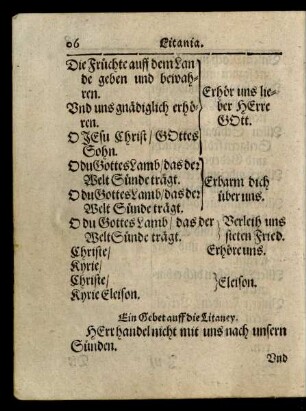 06 Litania.
Die Früchte auff dem Lan
de geben und bewah-
ren.
Erhör uns lie-
ber HErre
GOtt.
Vnd uns gnädiglich erhö-
ren.
O JEsu Christ / GOttes
Sohn.
O du Gottes Lamb / das der
Welt Sünde trägt.
Erbarm dich
über uns.
O du Gottes Lamb / das der
Welt Sünde trägt.
O du Gottes Lamb / das der
Welt Sünde trägt.
Verleih uns
steten Fried.
Christe /
Erhöre uns.
Kyrie /
Christe /
Eleison.
Kyrie Eleison.
Ein Gebet auff die Litaney.
HErr handel nicht mit uns nach unsern
Sünden.
Vnd